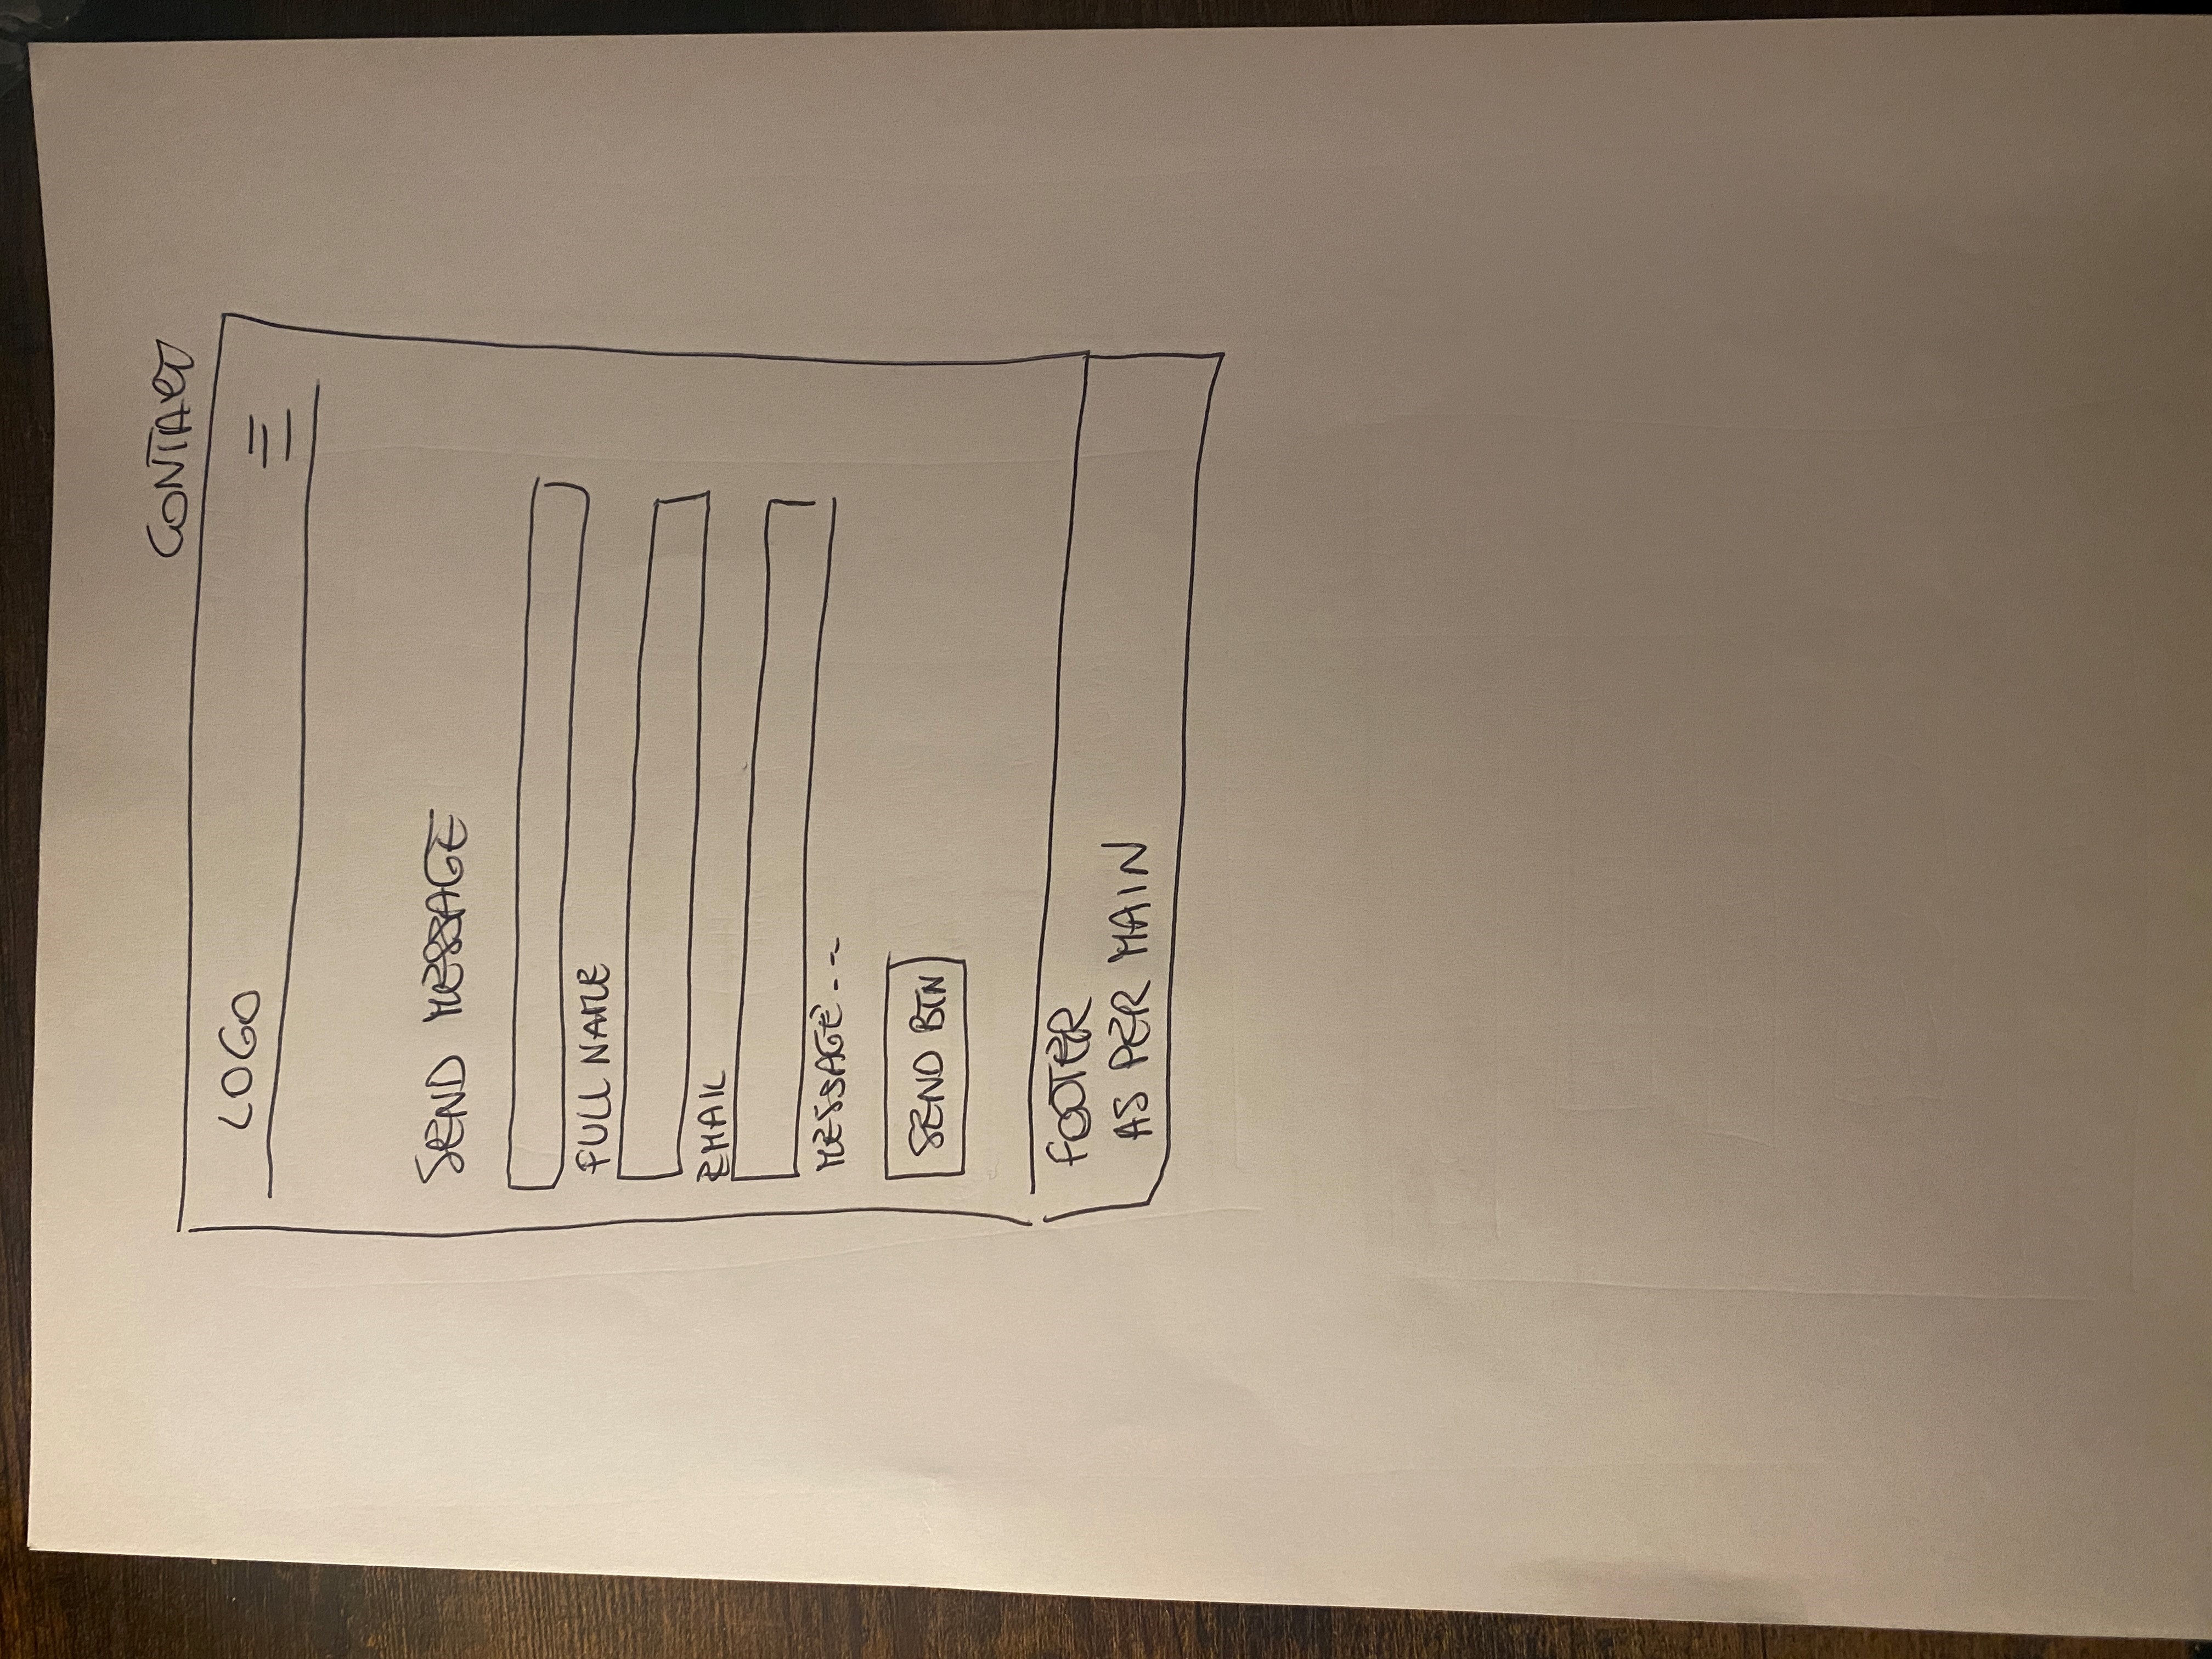 CONTACT
LOGO
SEND MESSAGE
FULL NAME
EMAIL
MESSAGE...
SEND BTN
FOOTER
AS PER MAIN